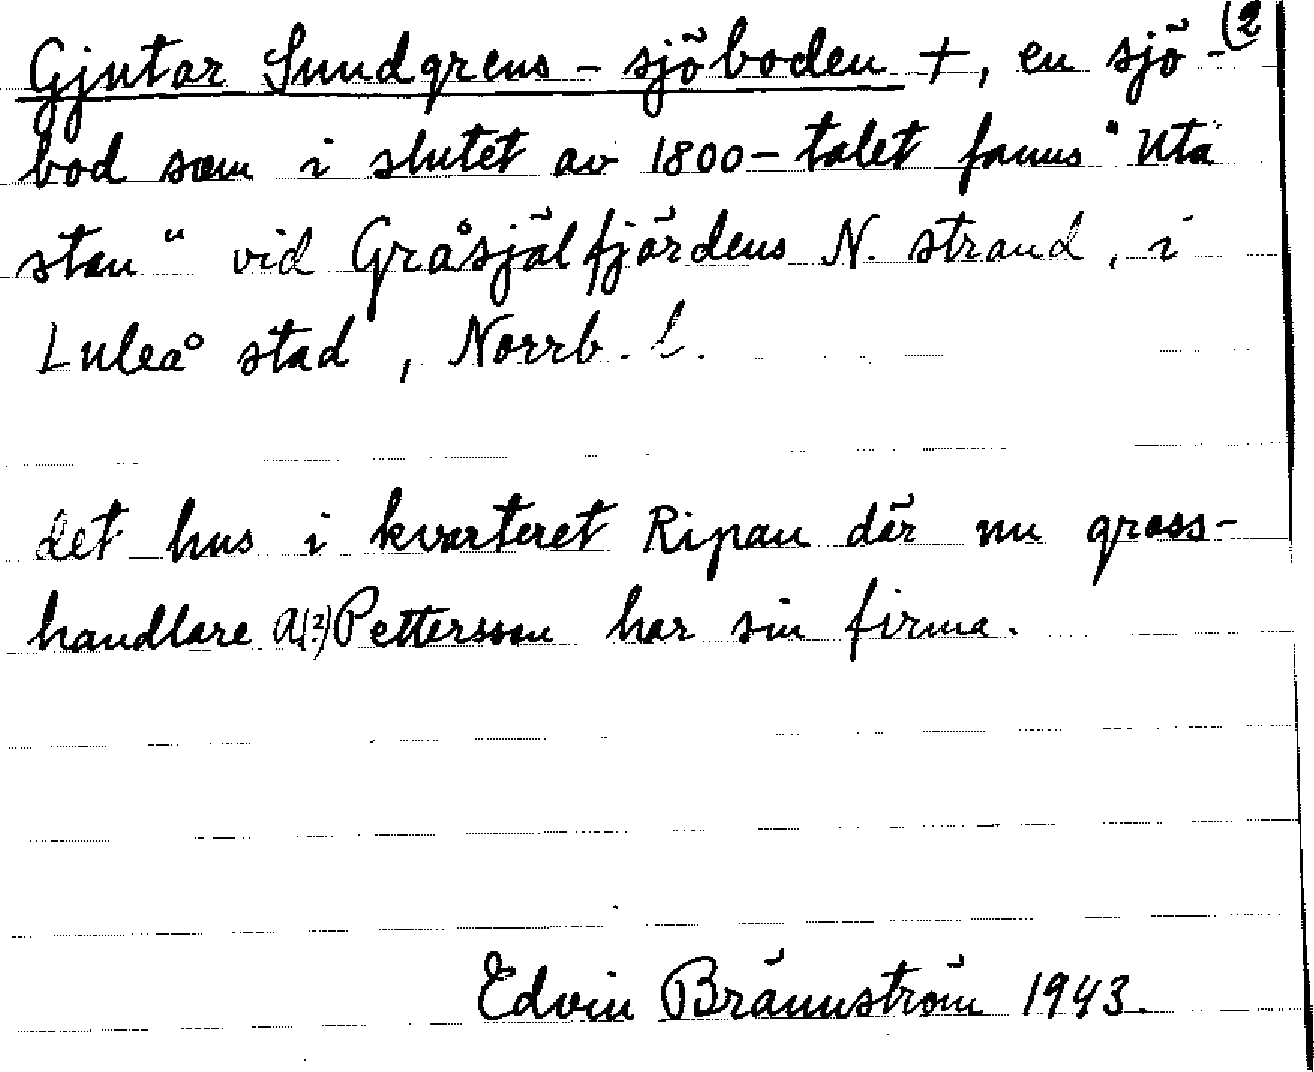 (2
Gjutar Sundgrens-sjöboden +, en sjö-
bod som i slutet av 1800-talet fanns "Utä
stan" vid Gråsjälfjärdens N. strand, i
Luleå stad, Norrb. l.
det hus i kvarteret Ripan där nu gross-
handlare A(?) Pettersson har sin firma.
Edvin Brännström 1943.